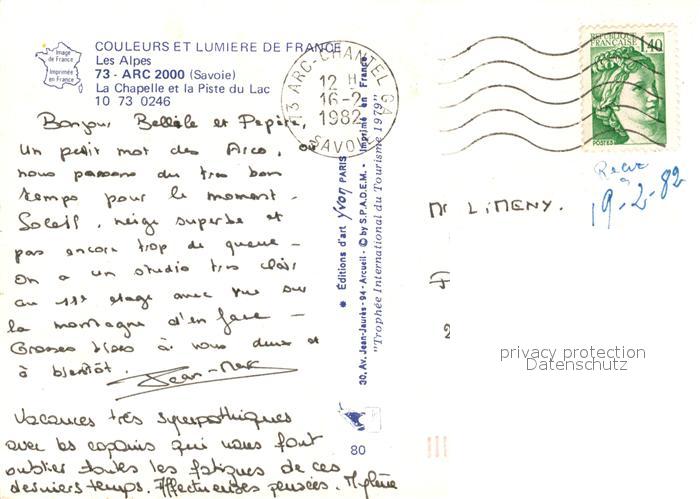 Image
de France
Imprimée
en France
COULEURS ET LUMIERE DE FRANCE
Les Alpes
73 - ARC 2000 (Savoie)
La Chapelle et la Piste du Lac
10 73 0246
Bonjour et Pepère,
Un petit mot des Arcs, où
nous passons du très bon
temps pour le moment -
Soleil, neige superbe et
pas encore trop de queue -
On a un studio très clair
au 11e étage avec vue sur
la montagne d'en face -
Grosses bises à vous deux et
à bientôt. Jean-Marc
Vacances très sympathiques
avec les copains qui nous font
oublier toutes les fatigues de ces
derniers temps. Affectueuses pensées. Mylène
73 ARC-CHANTEL-GA
12 H
16-2
1982
SAVOIE
★ Éditions d'art Yvon PARIS
30, Av. Jean-Jaurès - 94 - Arcueil - © by S.P.A.D.E.M. - Imprimé en France
"Trophée International du Tourisme 1979"
80
REPUBLIQUE
FRANÇAISE
1,40
POSTES
Reçue
19-2-82
Mr LIMENY.
F
2
privacy protection
Datenschutz